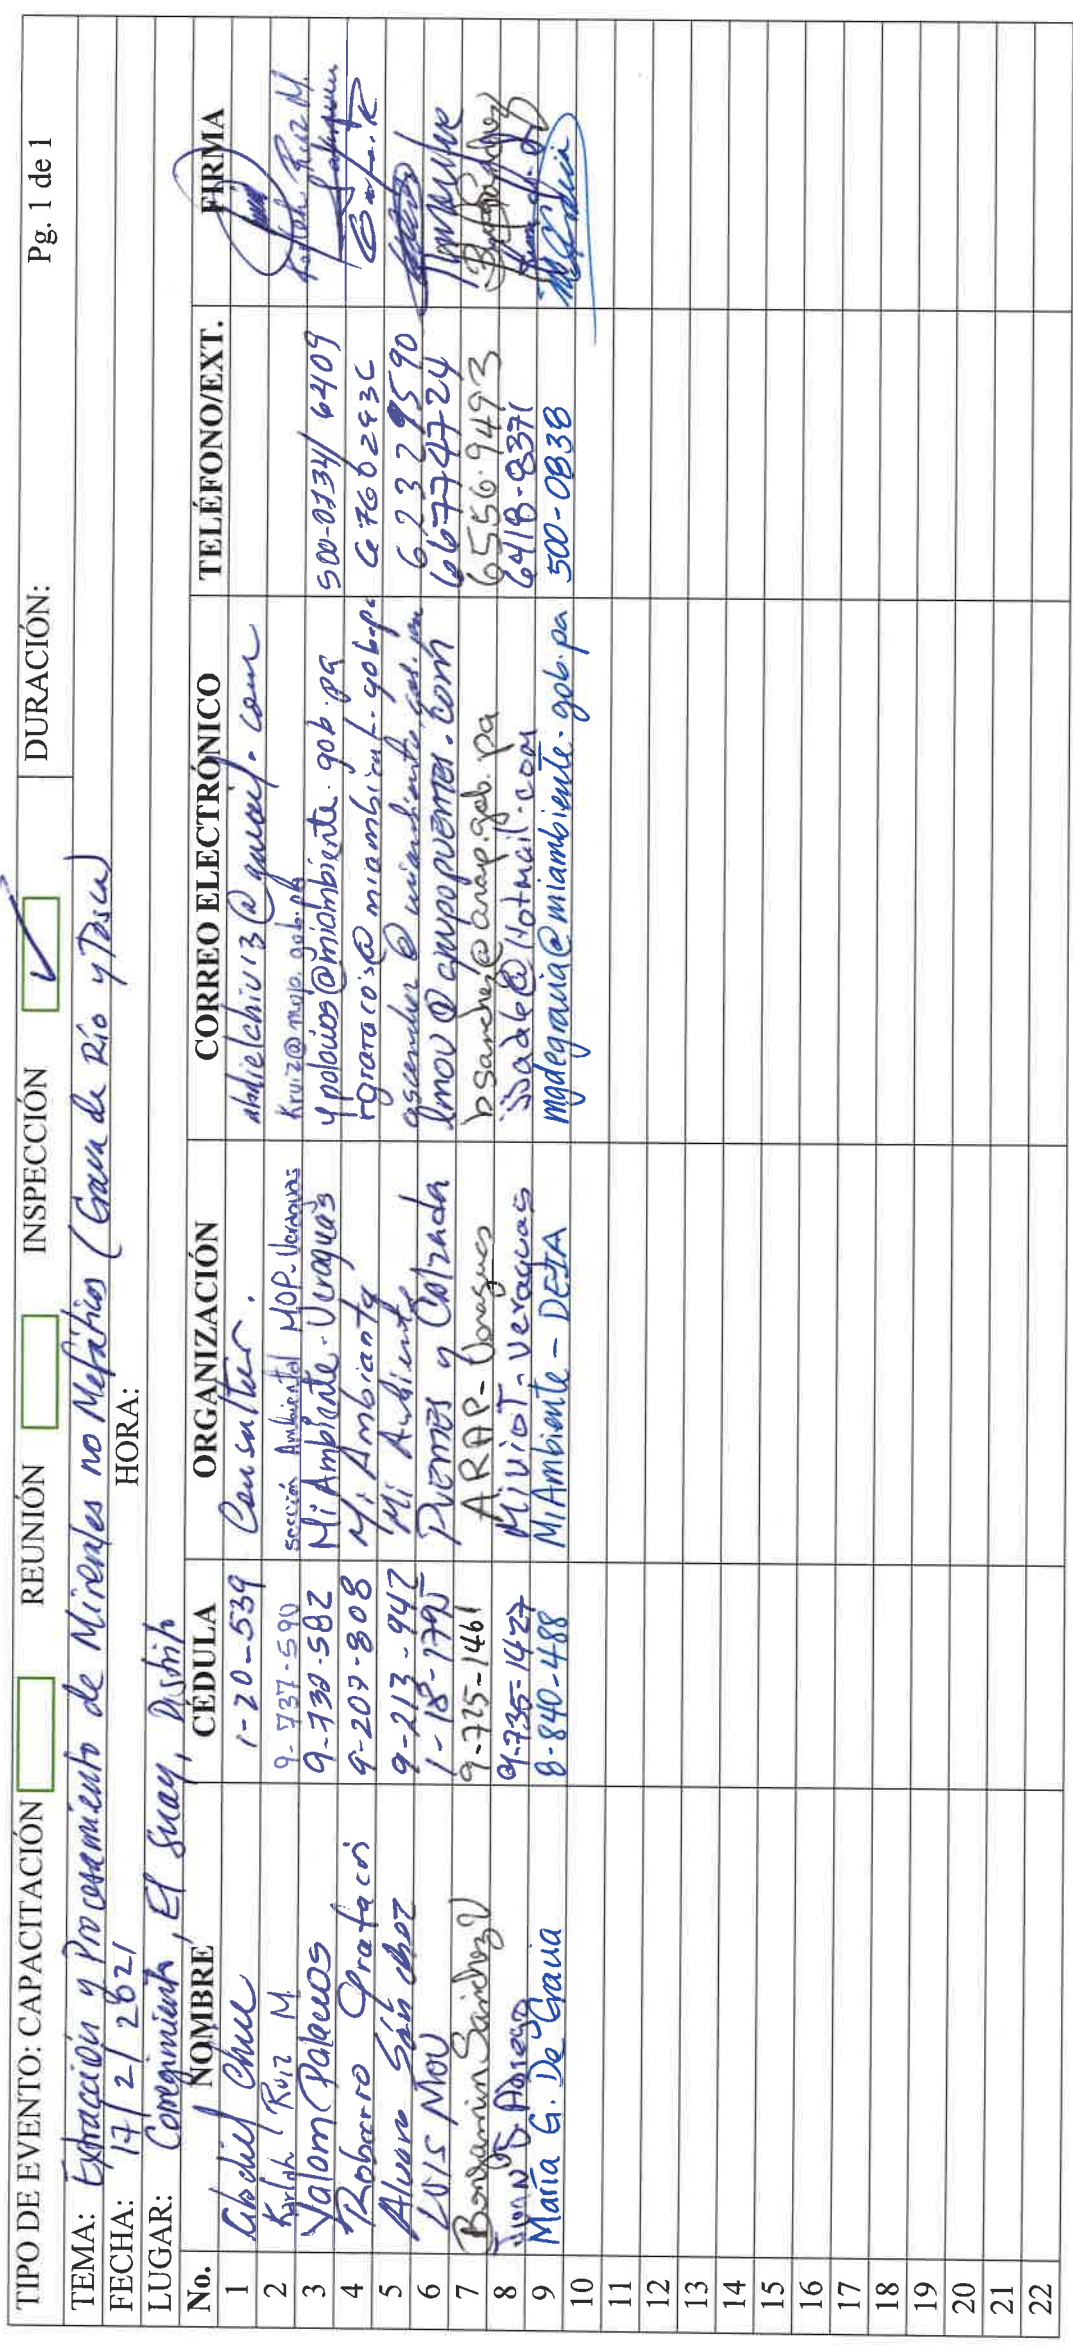 TIPO DE EVENTO: CAPACITACIÓN REUNIÓN INSPECCIÓN ✓ DURACIÓN: Pg. 1 de 1
TEMA: Extracción y Procesamiento de Minerales no Metálicos (Grava de Río y Tosca)
FECHA: 17/2/2021 HORA:
LUGAR: Corregimiento, El Suay, Distrito
No. NOMBRE CÉDULA ORGANIZACIÓN CORREO ELECTRÓNICO TELÉFONO/EXT. FIRMA
1 Abdiel Chiu 1-20-539 Consultor. abdielchiu13@gmail.com
2 Karlah Ruiz M. 9-737-590 Sección Ambiental MOP-Veraguas Kruiz@mop.gob.pa Karlah Ruiz M.
3 Yalom Palacios 9-730-582 MiAmbiente-Veraguas ypalacios@miambiente.gob.pa 500-0734/ 6409
4 Roberto Gratacós 9-207-808 Mi Ambiente rgratacos@miambiente.gob.pa
5 Alvaro Sánchez 9-213-942 Mi Ambiente 62329590
6 LUIS MOU 1-18-1795 PUENTES y Calzada lmou@grupopuentes.com 66774724
7 Benjamin Sánchez V 9-725-1461 ARAP-Veraguas bsanchez@arap.gob.pa 6556-9493
8 9-735-1427 MIVIOT-Veraguas 6418-8371
9 María G. De Gracia 8-840-488 MiAmbiente - DEIA mgdegracia@miambiente.gob.pa 500-0838
10
11
12
13
14
15
16
17
18
19
20
21
22